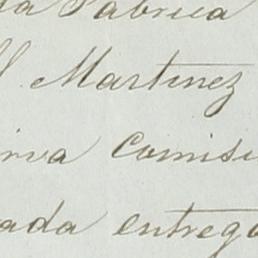 la Fabrica
M. Martinez
irva comisi
ada entrega